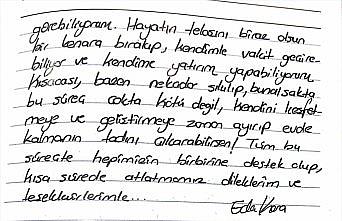 görebiliyorum. Hayatın telaşını biraz olsun
bir kenara bırakıp, kendimle vakit geçire-
biliyor ve kendime yatırım yapabiliyorum
Kısacası, bazen nekadar sıkılıp, bunalsakta
bu süreç çokta kötü değil, kendini keşfet-
meye ve geliştirmeye zaman ayırıp evde
kalmanın tadını çıkarabilirsen! Tüm bu
süreçte hepimizin birbirine destek olup,
kısa sürede atlatmamız dileklerim ve
teşekkürlerimle...
Eda Kara